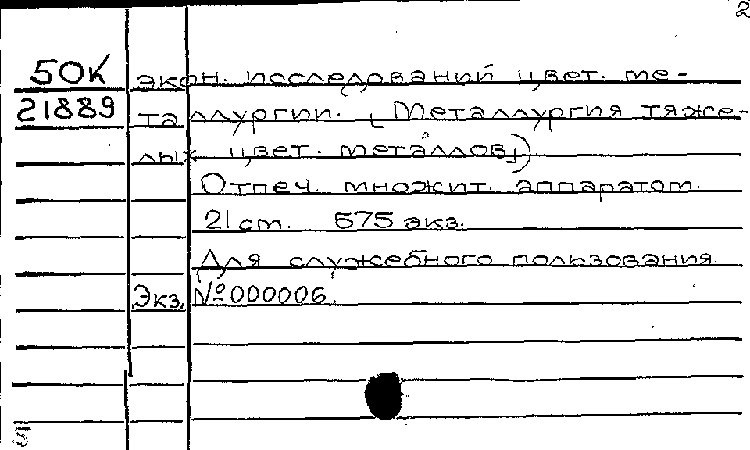 2
50К экон. исследований цвет. ме-
21889 таллургии. (Металлургия тяже-
лых цвет. металлов)
Отпеч. множит. аппаратом.
21 ст. 575 экз.
Для служебного пользования
Экз. №000006.